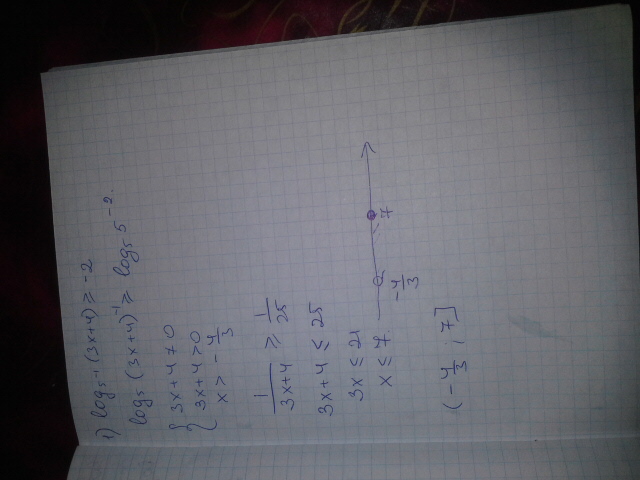 1) log₅₋₁(3x+4) ≥ -2
log₅(3x+4)⁻¹ ≥ log₅ 5⁻².
{ 3x+4 ≠ 0
3x+4 > 0
x > -4/3
1/(3x+4) ≥ 1/25
3x+4 ≤ 25
3x ≤ 21
x ≤ 7.
-4/3 7
(-4/3 ; 7]